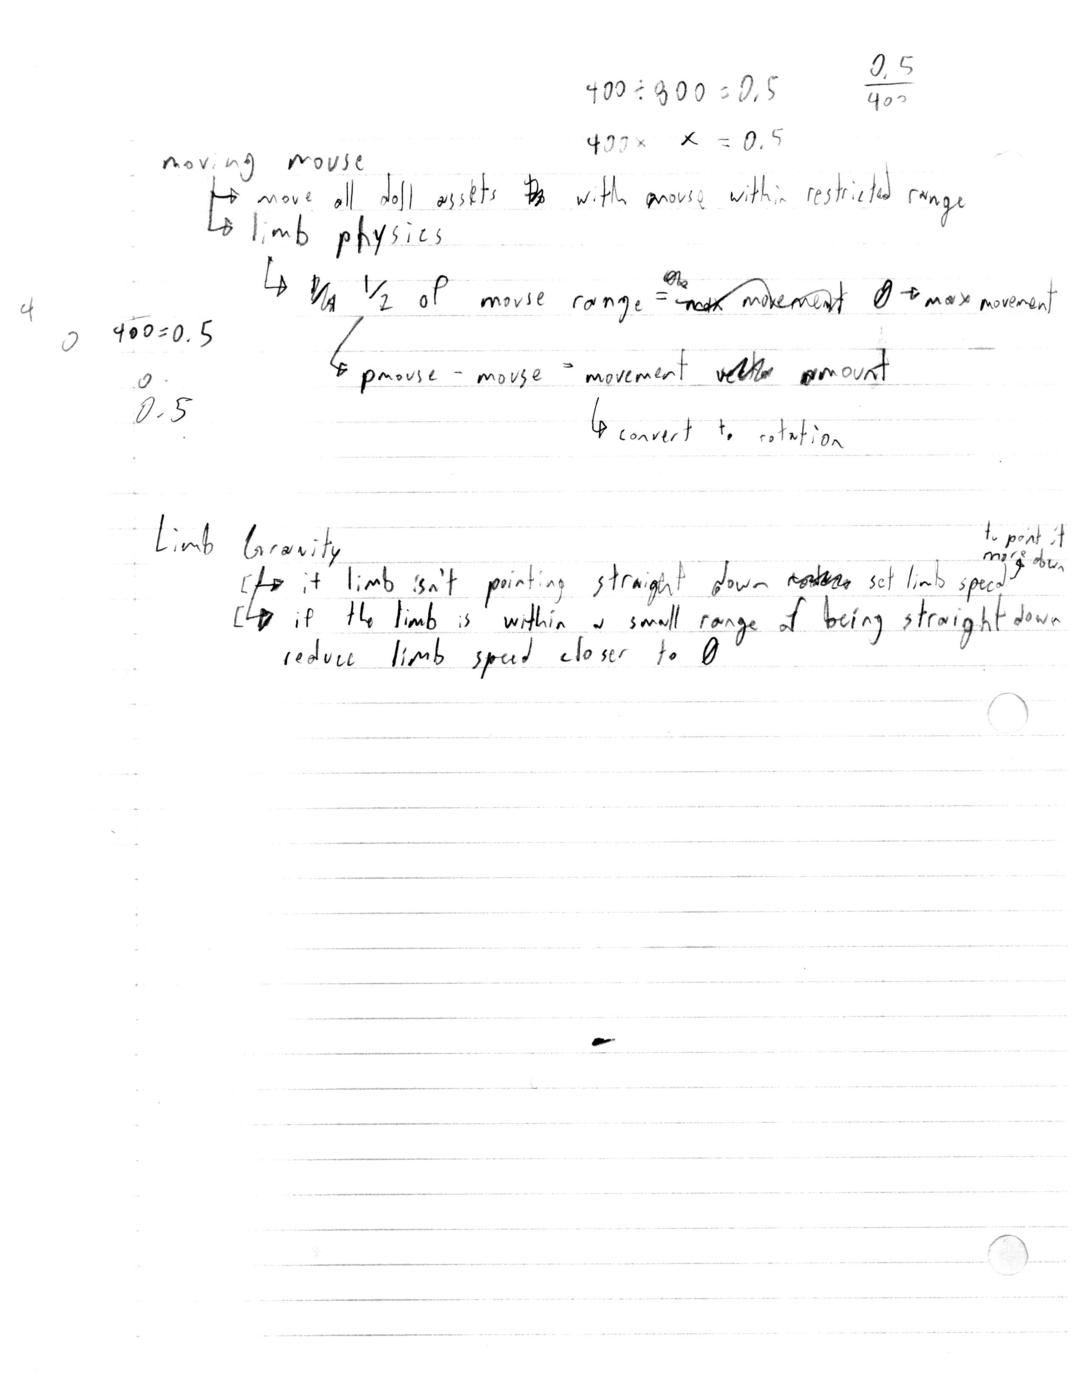 400 ÷ 800 = 0.5
0.5
400
400x x = 0.5
moving mouse
↳ move all doll assets with mouse within restricted range
↳ limb physics
↳ 1/2 of mouse range = max movement 0 → max movement
4
0 400=0.5
↳ pmouse - mouse = movement amount
0
0.5
↳ convert to rotation
Limb Gravity
to point it
more down
↳ if limb isn't pointing straight down set limb speed
↳ if the limb is within a small range of being straight down
reduce limb speed closer to 0